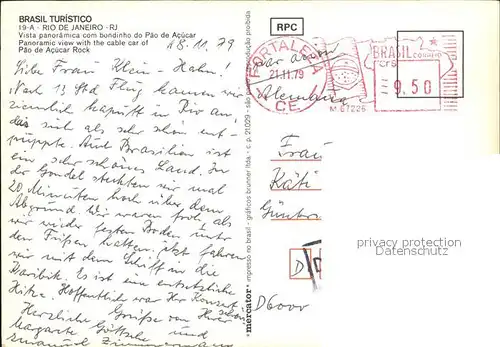 BRASIL TURÍSTICO
19-A - RIO DE JANEIRO - RJ
Vista panorâmica com bondinho do Pão de Açúcar
Panoramic view with the cable car of
Pão de Açúcar Rock
18.11.79
Liebe Frau Klein-Hahn!
Nach 13 Std Flug kamen wir
ziemlich kaputt in Rio an,
das sich als sehr schön ent-
puppte. Auch Brasilien ist
ein sehr schönes Land. In
der Gondel steckten wir mal
20 Minuten hoch über dem
Abgrund. Wir waren froh als
wir wieder festen Boden unter
den Füßen hatten. Jetzt fahren
wir mit dem Schiff in die
Karibik. Es ist eine entsetzliche
Hitze. Hoffentlich war Ihr Konzert schön
Herzliche Grüße von Ihrer
Margarete Göttsche und
Zimmermann
mercator® impresso no brasil - gráficos brunner ltda. - c. p. 21.029 - são paulo - reprodução proibida
RPC
par avion
Alemanha
FORTALEZA
21.11.79
C.E.
BRASIL CORREIO
9.50
Frau
Käti
Günter
D
D6000
privacy protection
Datenschutz